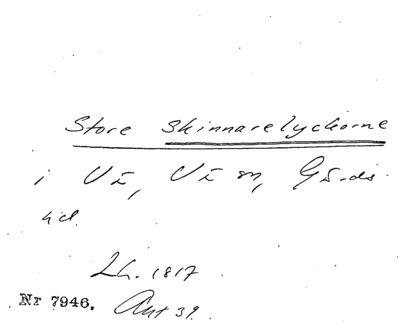 Store Skinnarelyckorne
i Vä, Vä sn, Gärds
hd.
Lh. 1817
Nr 7946. Akt 39.